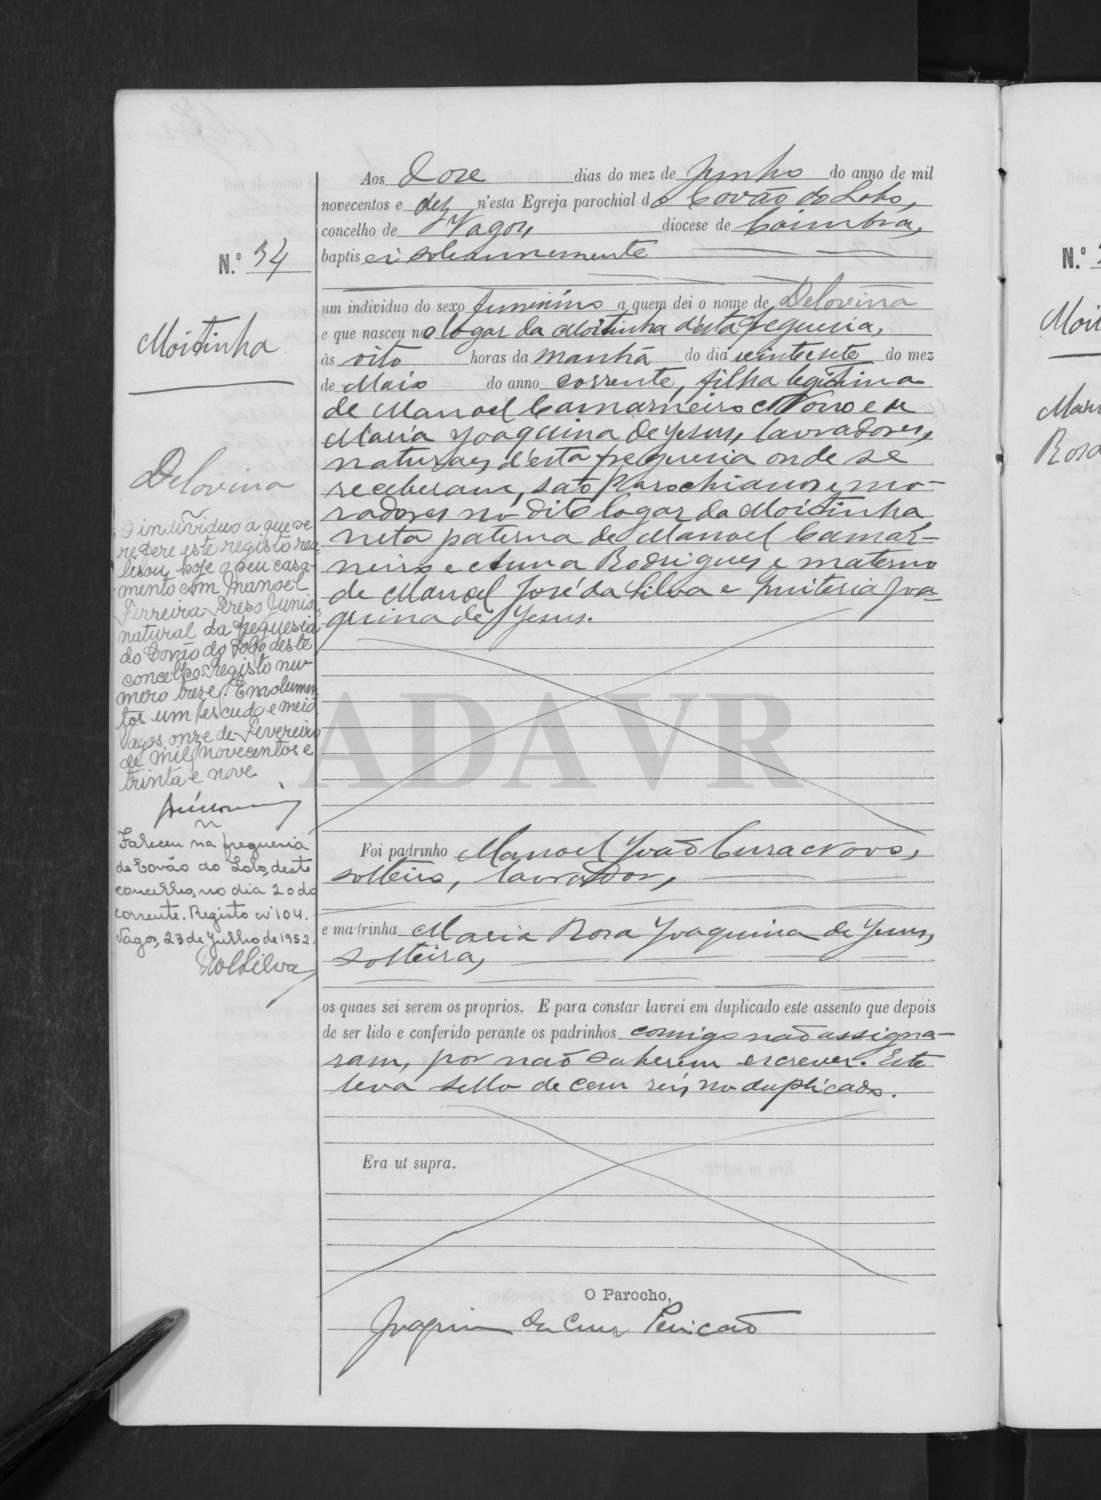 N.º 34
Moitinha
Delovina
O indivíduo a que se
refere este registo rea
lisou hoje o seu casa-
mento com Manoel
Ferreira Junior,
natural da freguesia
do Covão do Lobo deste
concelho. Registo nu-
mero treze. Emolumen
tos um escudo e meio
Vagos, onze de Fevereiro
de mil novecentos e
trinta e nove.
Faleceu na freguesia
de Covão do Lobo, deste
concelho, no dia 20 do
corrente. Registo nº 104.
Vagos, 23 de Julho de 1952.
Silva
Aos doze dias do mez de Junho do anno de mil
novecentos e dez n'esta Egreja parochial do Covão do Lobo,
concelho de Vagos diocese de Coimbra,
baptisei solemnemente
um individuo do sexo feminino a quem dei o nome de Delovina
e que nasceu no logar da Moitinha d'esta freguesia,
às oito horas da manhã do dia vinte sete do mez
de Maio do anno corrente, filha legitima
de Manoel Camarneiro Novo e
Maria Joaquina de Jesus, lavradores,
naturaes d'esta freguesia onde se
receberam, são Parochianos e mo-
radores no dito logar da Moitinha
neta paterna de Manoel Camar-
neiro e Anna Rodrigues e materna
de Manoel José da Silva e Quiteria Joa-
quina de Jesus.
ADAVR
Foi padrinho Manoel João Novo,
solteiro, lavrador,
e madrinha Maria Rosa Joaquina de Jesus,
solteira,
os quaes sei serem os proprios. E para constar lavrei em duplicado este assento que depois
de ser lido e conferido perante os padrinhos comigo não assigna-
ram, por não saberem escrever. Este
leva sello de cem reis no duplicado.
Era ut supra.
O Parocho,
Joaquim da Cruz Pericão
N.º 3
Moit
Mari
Rosa